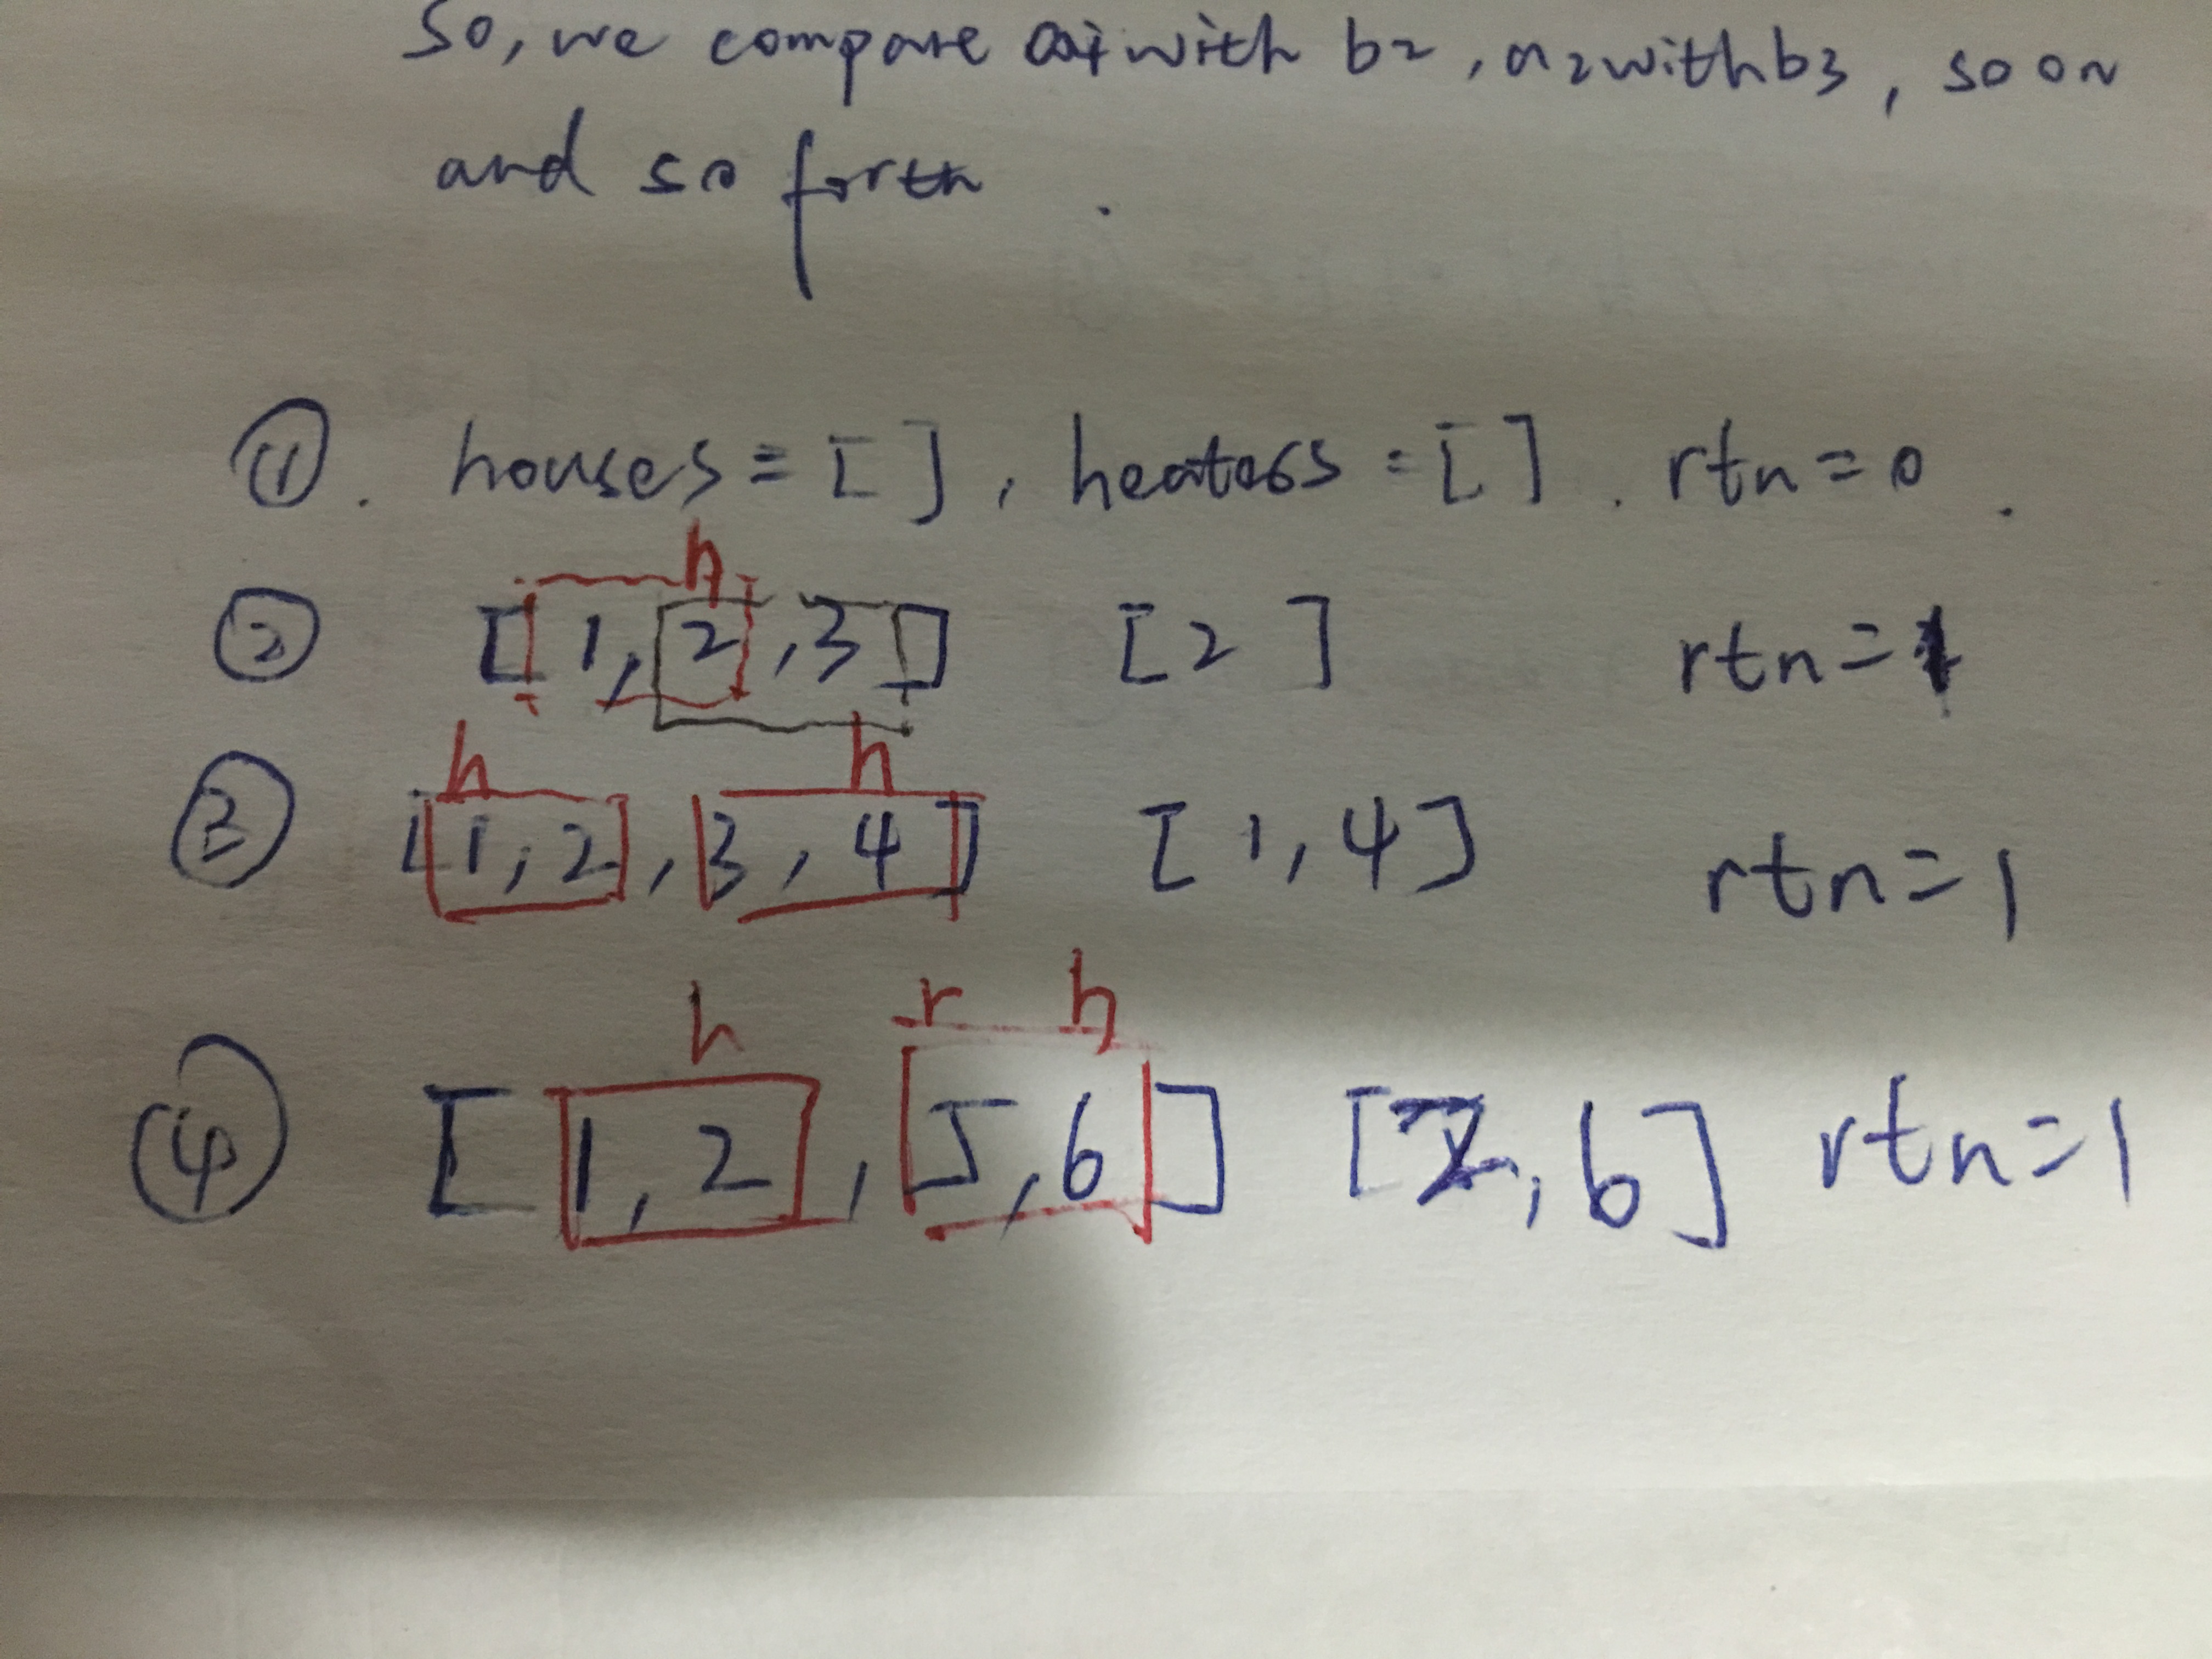 So, we compare a1 with b2, a2 with b3, so on
and so forth.
① . houses = [ ], heaters = [ ]. rtn = 0 .
h
② [1, 2, 3] [2] rtn = 1
h h
③ [1, 2, 3, 4] [1, 4] rtn = 1
h r h
④ [1, 2, 5, 6] [2, 6] rtn = 1